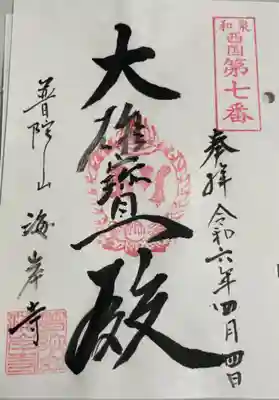 和泉
西国
第七番
奉拝
令和六年四月四日
大雄寳殿
普陀山
海岸寺